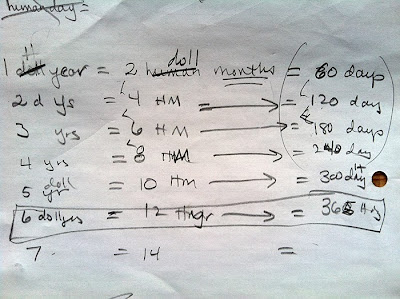 humanday =
1 doll year = 2 human doll months = 60 days
2 d ys = 4 HM = 120 day
3 yrs = 6 HM = 180 days
4 yrs = 8 HM = 240 day
5 doll yr = 10 HM = 300 day
6 dollyrs = 12 = 365
7 = 14 =